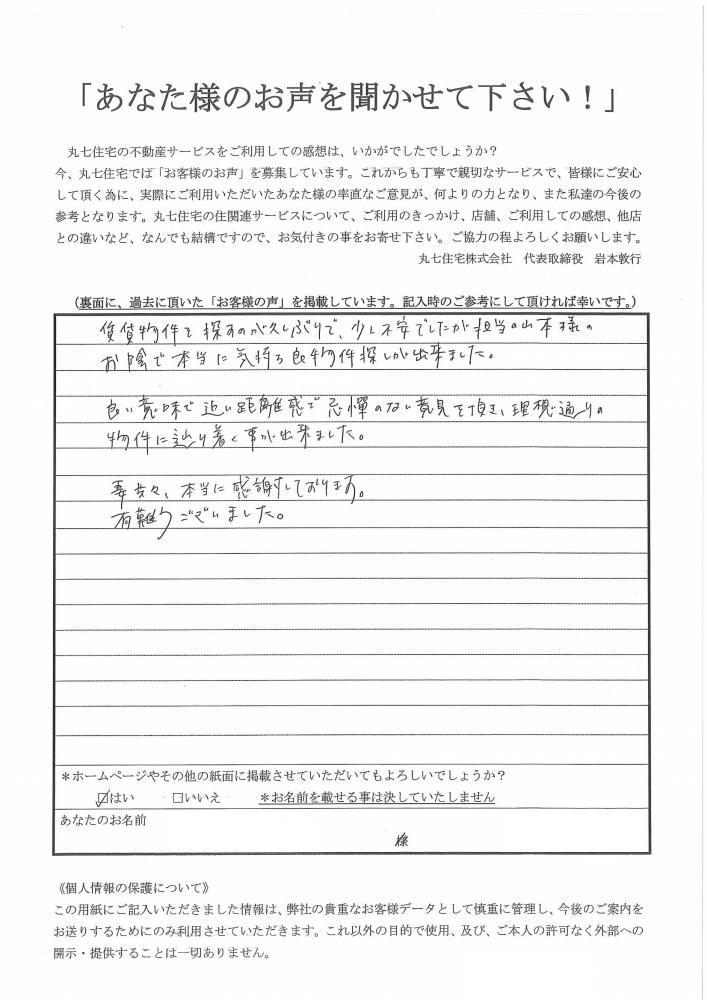 「あなた様のお声を聞かせて下さい！」
丸七住宅の不動産サービスをご利用しての感想は、いかがでしたでしょうか？
今、丸七住宅では「お客様のお声」を募集しています。これからも丁寧で親切なサービスで、皆様にご安心
して頂く為に、実際にご利用いただいたあなた様の率直なご意見が、何よりの力となり、また私達の今後の
参考となります。丸七住宅の住関連サービスについて、ご利用のきっかけ、店舗、ご利用しての感想、他店
との違いなど、なんでも結構ですので、お気付きの事をお寄せ下さい。ご協力の程よろしくお願いします。
丸七住宅株式会社　代表取締役　岩本敦行
（裏面に、過去に頂いた「お客様の声」を掲載しています。記入時のご参考にして頂ければ幸いです。）
賃貸物件を探すのが久しぶりで、少し不安でしたが担当の山本様の
お陰で本当に気持ち良物件探しが出来ました。
良い意味で近い距離感で忌憚のない意見を頂き、理想通りの
物件に辿り着く事が出来ました。
妻共々、本当に感謝しております。
有難うございました。
＊ホームページやその他の紙面に掲載させていただいてもよろしいでしょうか？
☑はい　□いいえ　＊お名前を載せる事は決していたしません
あなたのお名前
様
《個人情報の保護について》
この用紙にご記入いただきました情報は、弊社の貴重なお客様データとして慎重に管理し、今後のご案内を
お送りするためにのみ利用させていただきます。これ以外の目的で使用、及び、ご本人の許可なく外部への
開示・提供することは一切ありません。